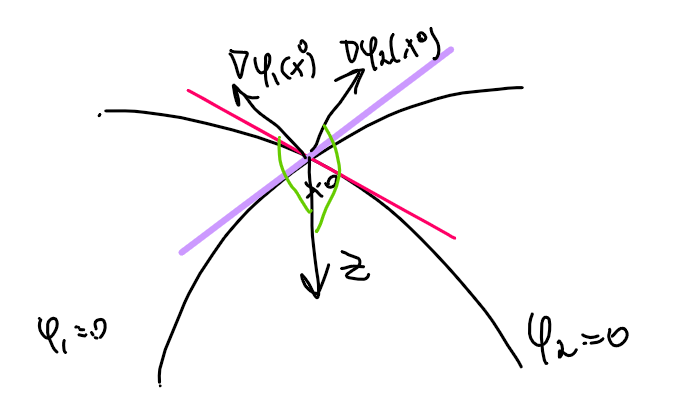 ∇φ₁(x⁰) ∇φ₂(x⁰)
x⁰
z
φ₁=0
φ₂=0